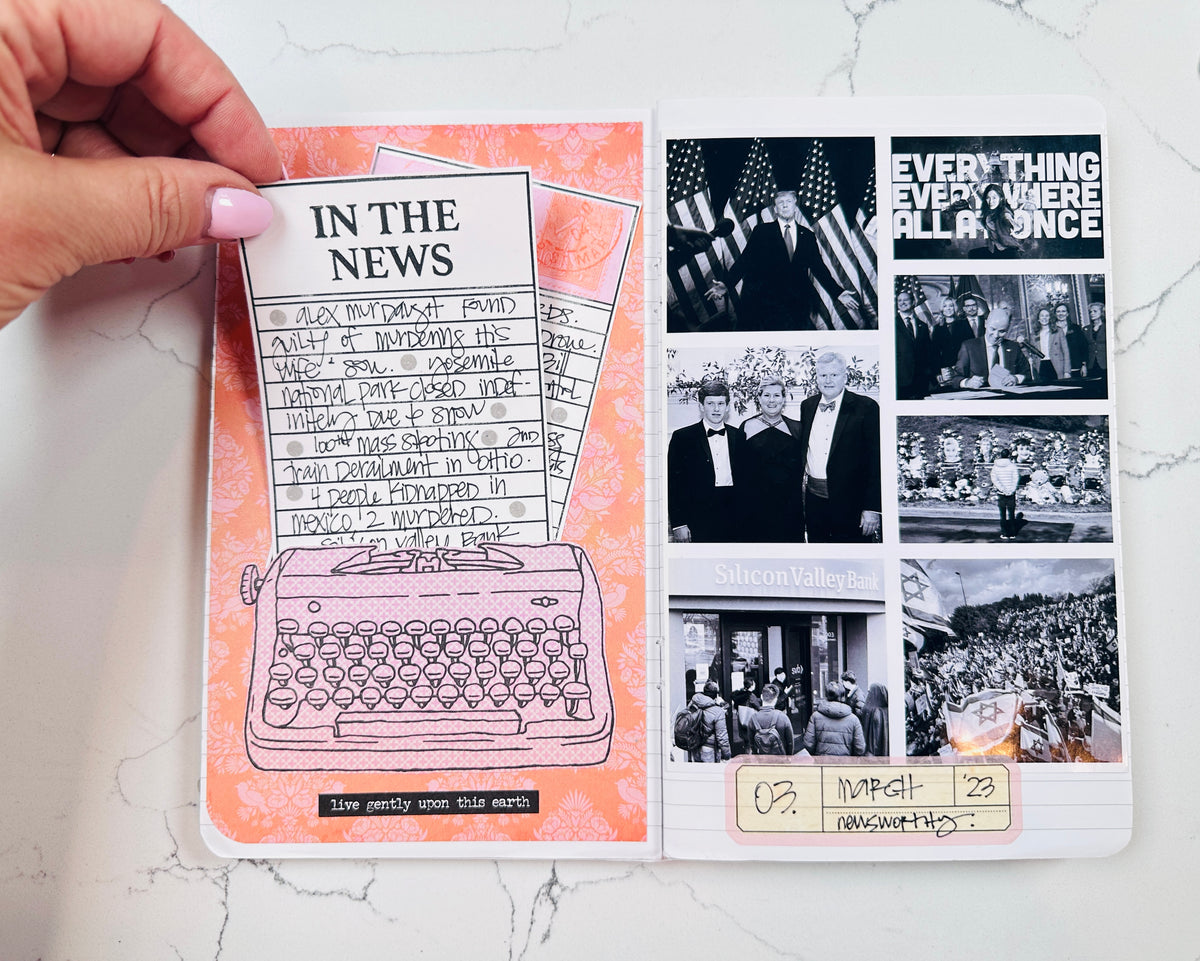 IN THE
NEWS
alex murdaugh found
guilty of murdering his
wife + son. yosemite
national park closed indef-
initely due to snow
100th mass shooting 2nd
train derailment in ohio.
4 people kidnapped in
mexico 2 murdered.
silicon valley Bank
live gently upon this earth
EVERYTHING
EVERYWHERE
ALL AT ONCE
Silicon Valley Bank
03. MARCH '23
newsworthy.